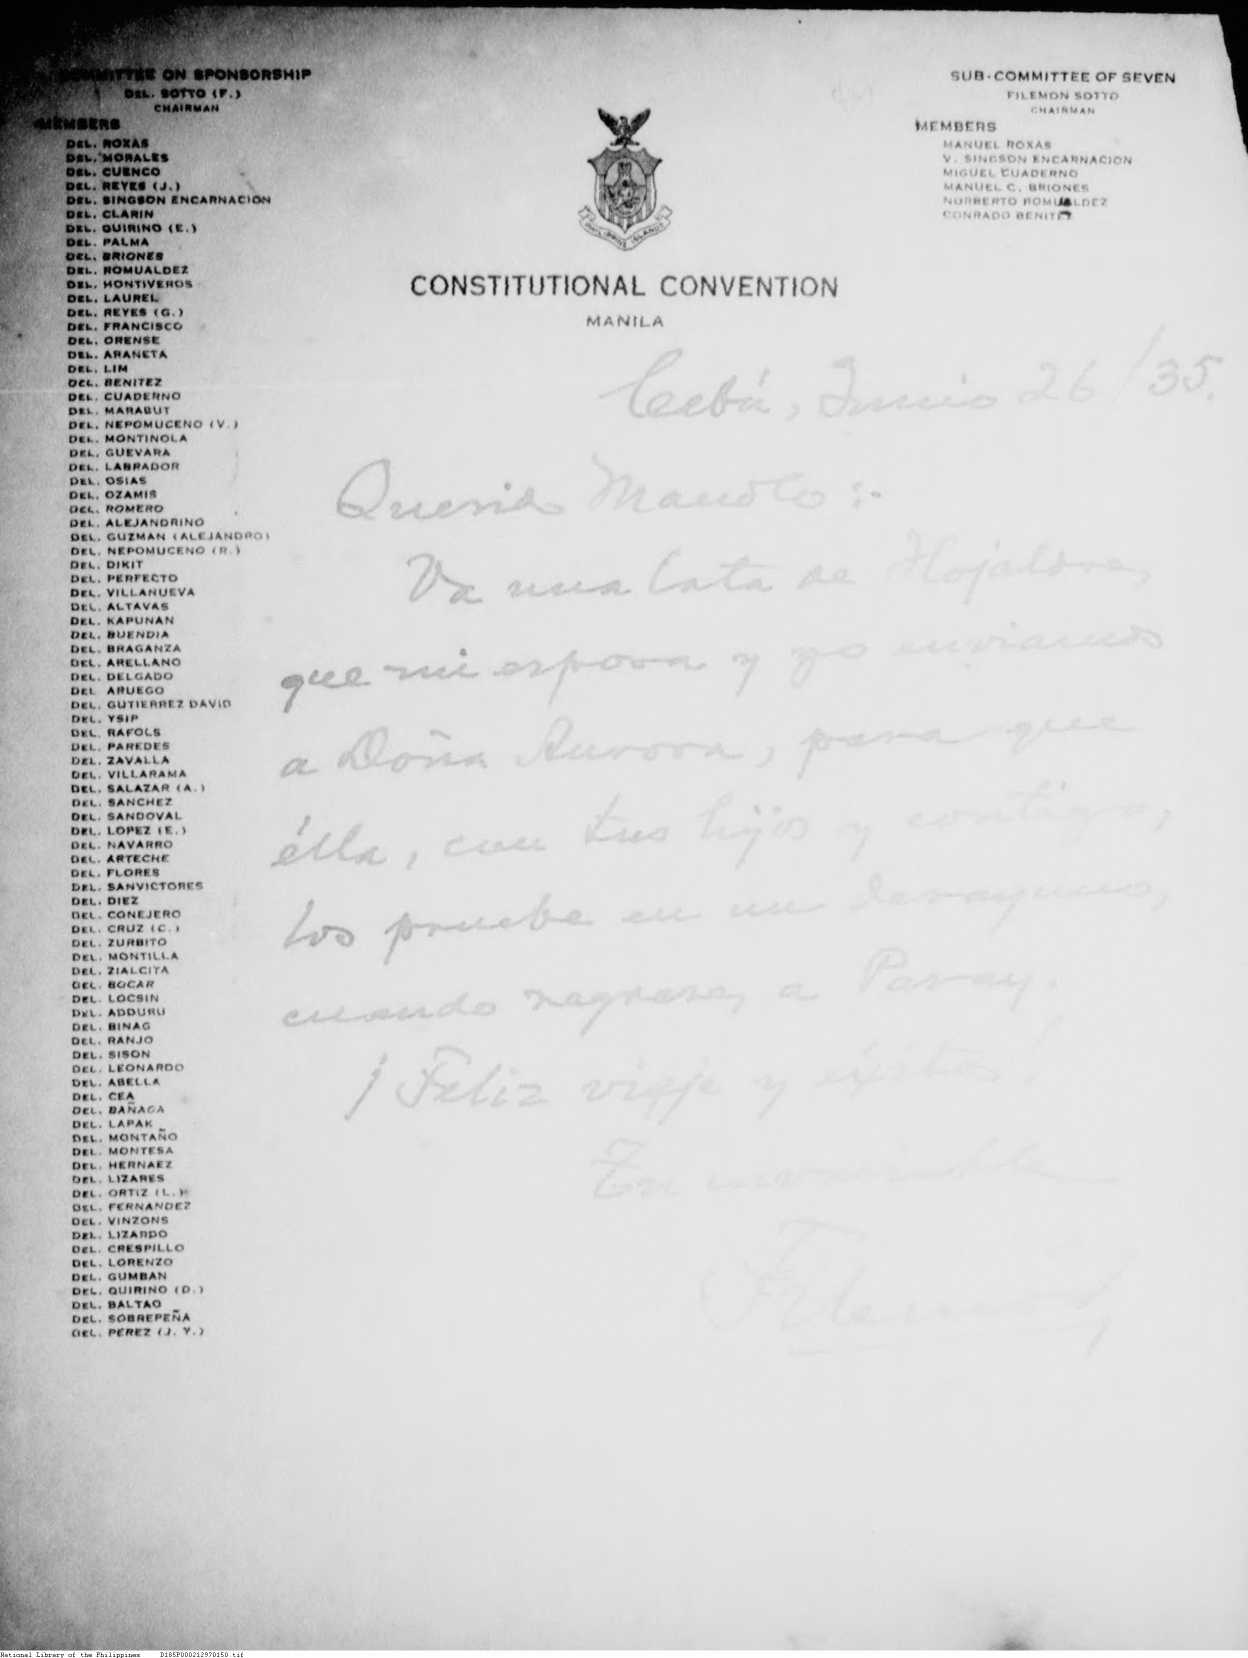 COMMITTEE ON SPONSORSHIP
DEL. SOTTO (F.)
CHAIRMAN
MEMBERS
DEL. ROXAS
DEL. MORALES
DEL. CUENCO
DEL. REYES (J.)
DEL. SINGSON ENCARNACION
DEL. CLARIN
DEL. QUIRINO (E.)
DEL. PALMA
DEL. BRIONES
DEL. ROMUALDEZ
DEL. HONTIVEROS
DEL. LAUREL
DEL. REYES (G.)
DEL. FRANCISCO
DEL. ORENSE
DEL. ARANETA
DEL. LIM
DEL. BENITEZ
DEL. CUADERNO
DEL. MARABUT
DEL. NEPOMUCENO (V.)
DEL. MONTINOLA
DEL. GUEVARA
DEL. LABRADOR
DEL. OSIAS
DEL. OZAMIS
DEL. ROMERO
DEL. ALEJANDRINO
DEL. GUZMAN (ALEJANDRO)
DEL. NEPOMUCENO (R.)
DEL. DIKIT
DEL. PERFECTO
DEL. VILLANUEVA
DEL. ALTAVAS
DEL. KAPUNAN
DEL. BUENDIA
DEL. BRAGANZA
DEL. ARELLANO
DEL. DELGADO
DEL ARUEGO
DEL. GUTIERREZ DAVID
DEL. YSIP
DEL. RAFOLS
DEL. PAREDES
DEL. ZAVALLA
DEL. VILLARAMA
DEL. SALAZAR (A.)
DEL. SANCHEZ
DEL. SANDOVAL
DEL. LOPEZ (E.)
DEL. NAVARRO
DEL. ARTECHE
DEL. FLORES
DEL. SANVICTORES
DEL. DIEZ
DEL. CONEJERO
DEL. CRUZ (C.)
DEL. ZURBITO
DEL. MONTILLA
DEL. ZIALCITA
DEL. BOCAR
DEL. LOCSIN
DEL. ADDURU
DEL. BINAG
DEL. RANJO
DEL. SISON
DEL. LEONARDO
DEL. ABELLA
DEL. CEA
DEL. BAÑAGA
DEL. LAPAK
DEL. MONTAÑO
DEL. MONTESA
DEL. HERNAEZ
DEL. LIZARES
DEL. ORTIZ (L.)
DEL. FERNANDEZ
DEL. VINZONS
DEL. LIZARDO
DEL. CRESPILLO
DEL. LORENZO
DEL. GUMBAN
DEL. QUIRINO (D.)
DEL. BALTAO
DEL. SOBREPEÑA
DEL. PEREZ (J. Y.)
PHILIPPINE ISLANDS
CONSTITUTIONAL CONVENTION
MANILA
SUB-COMMITTEE OF SEVEN
FILEMON SOTTO
CHAIRMAN
MEMBERS
MANUEL ROXAS
V. SINGSON ENCARNACION
MIGUEL CUADERNO
MANUEL C. BRIONES
NORBERTO ROMUALDEZ
CONRADO BENITEZ
Cebú, Junio 26/35.
Querido Manolo:-
Va una lata de Hojaldres,
que mi esposa y yo enviamos
a Doña Aurora, para que
élla, con tus hijos y contigo,
los pruebe en un desayuno,
cuando a Pasay.
¡Feliz viaje y éxitos!
Tu invariable
Filemon
National Library of the Philippines D185P000212970150.tif